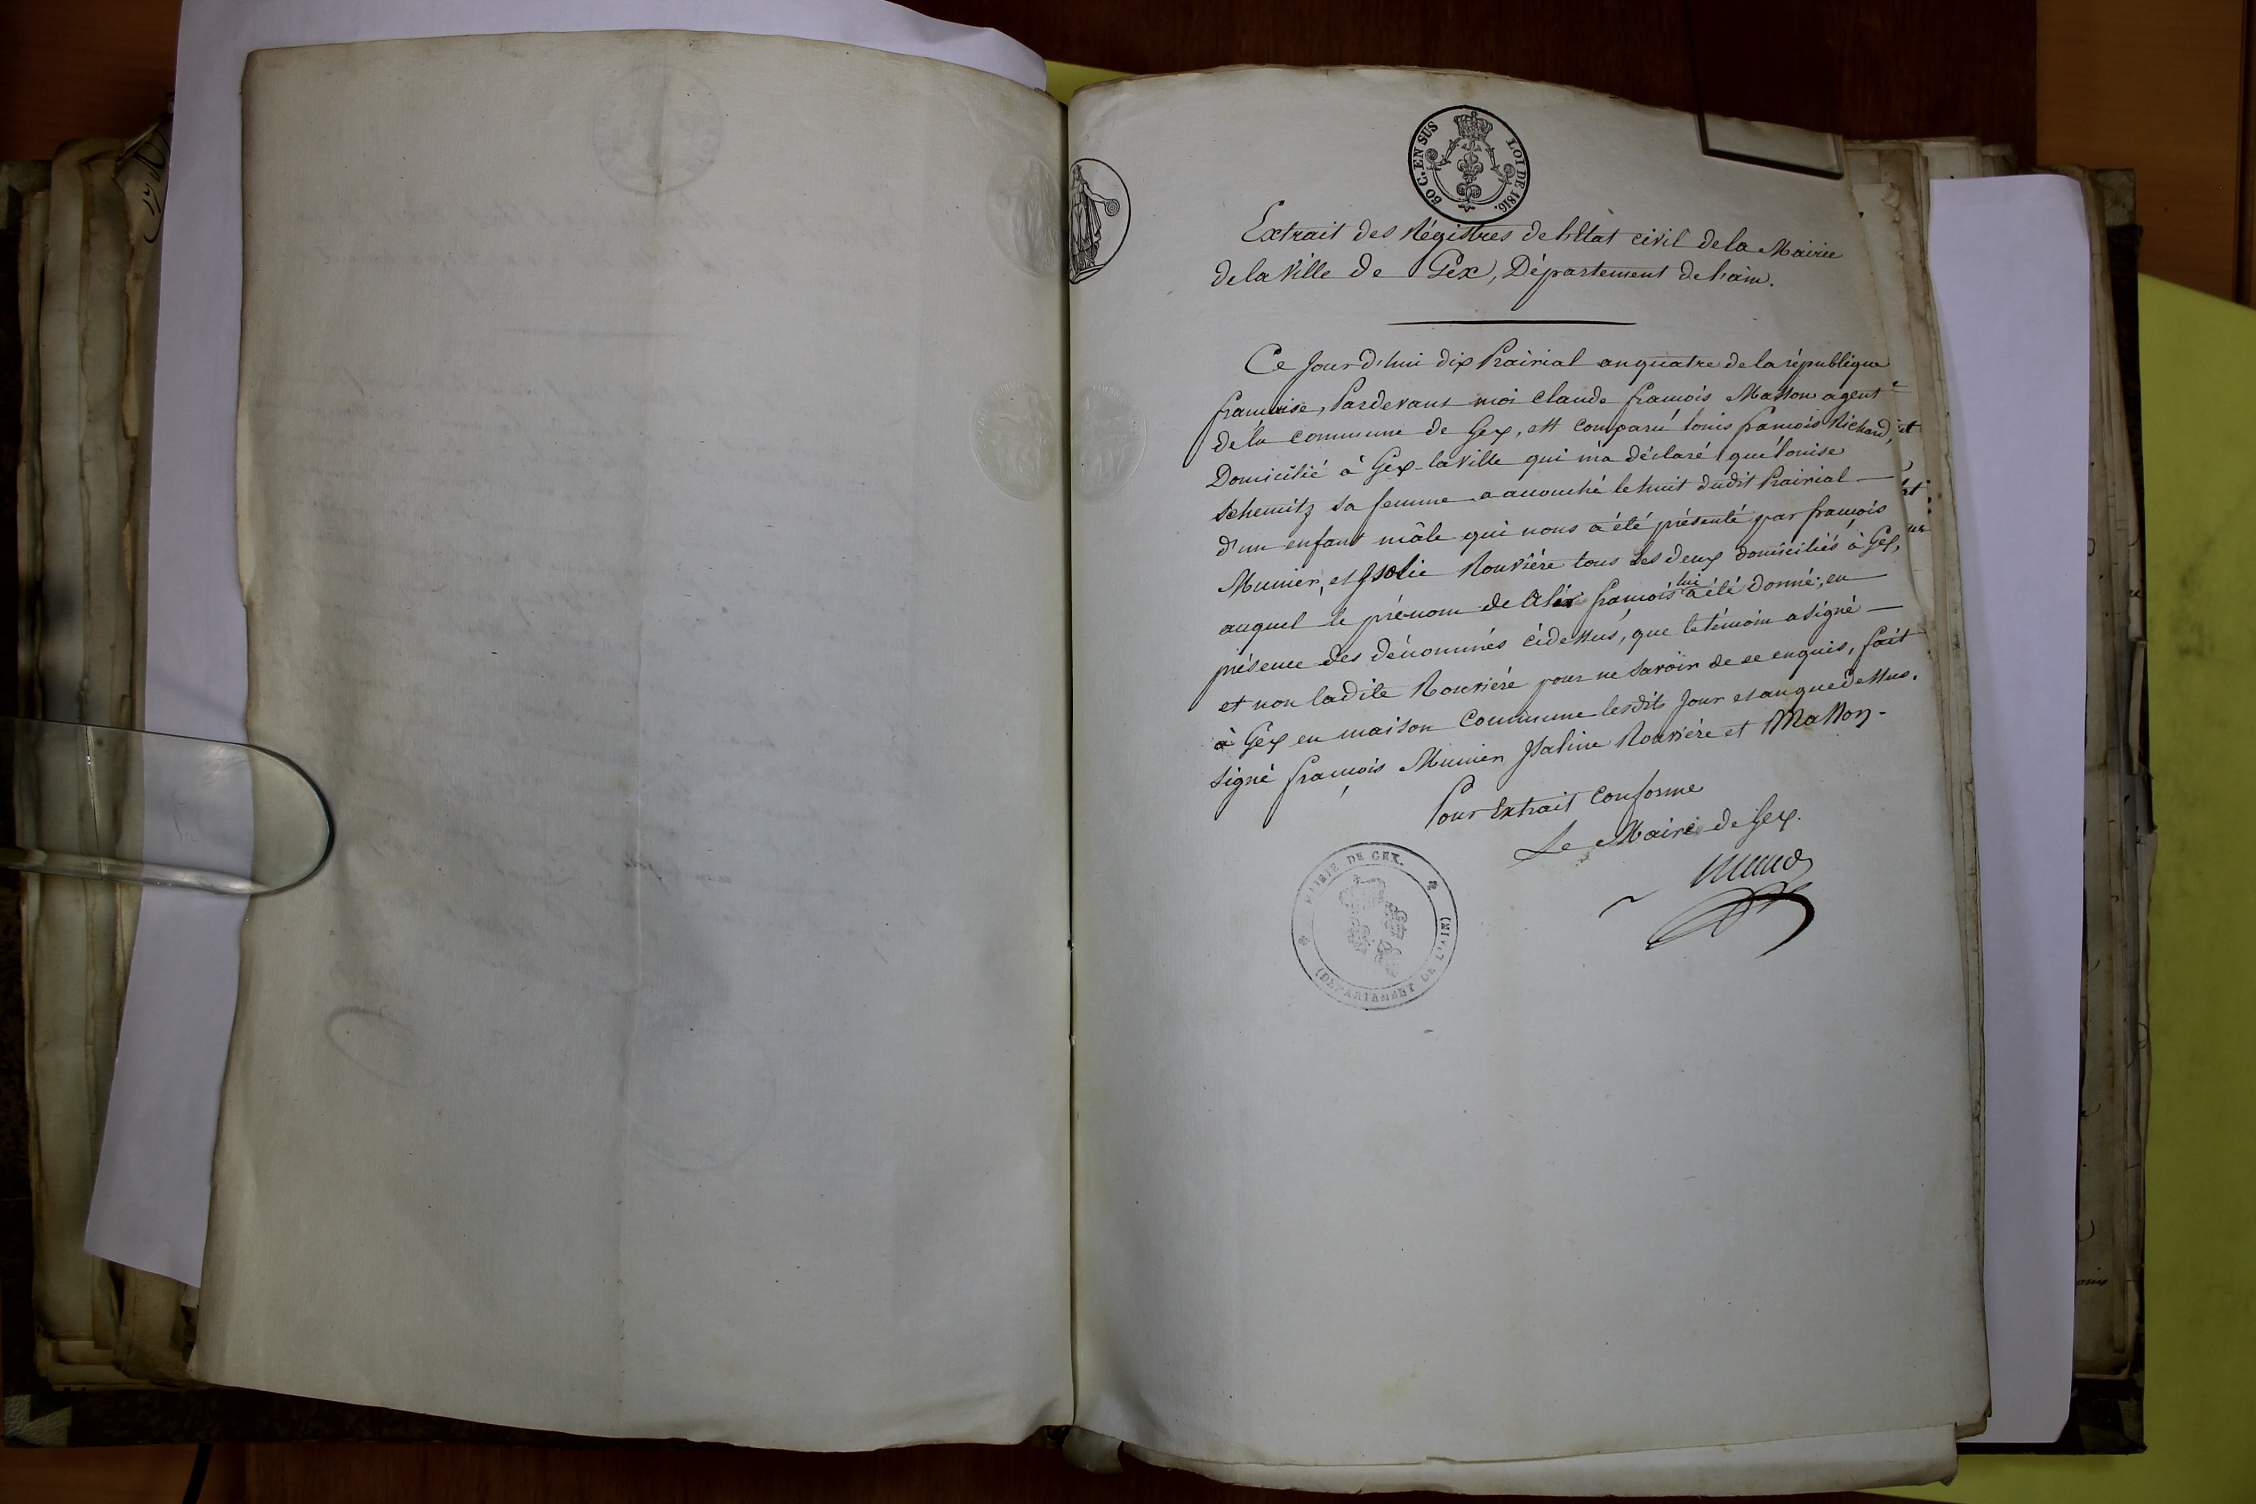 80 C. EN SUS
LOI DE 1816.
Extrait des Régistres de l'état civil de la Mairie
de la Ville de Gex, Département de l'ain.
Ce Jourd'hui dix Prairial an quatre de la république
françoise, Pardevant moi Claude françois Masson agent
de la commune de Gex, est comparu louis françois Richard,
Domicilié à Gex-la ville qui m'a déclaré que louise
Schemitz sa femme a accouché le huit dudit Prairial
d'un enfant mâle qui nous a été présenté par françois
Munier, et Rouvière tous les deux domiciliés à Gex,
auquel le prénom de Alix françois lui a été donné, en
présence des dénommés cidessus, que le témoin a signé
et non ladite Rouviére pour ne savoir de ce enquis, fait
à Gex en maison Commune lesdits Jour et an que dessus.
signé françois Munier Isaline Rouviére et Masson-
Pour Extrait conforme
Le Maire de Gex.
MAIRIE DE GEX.
(DÉPARTEMENT DE L'AIN)